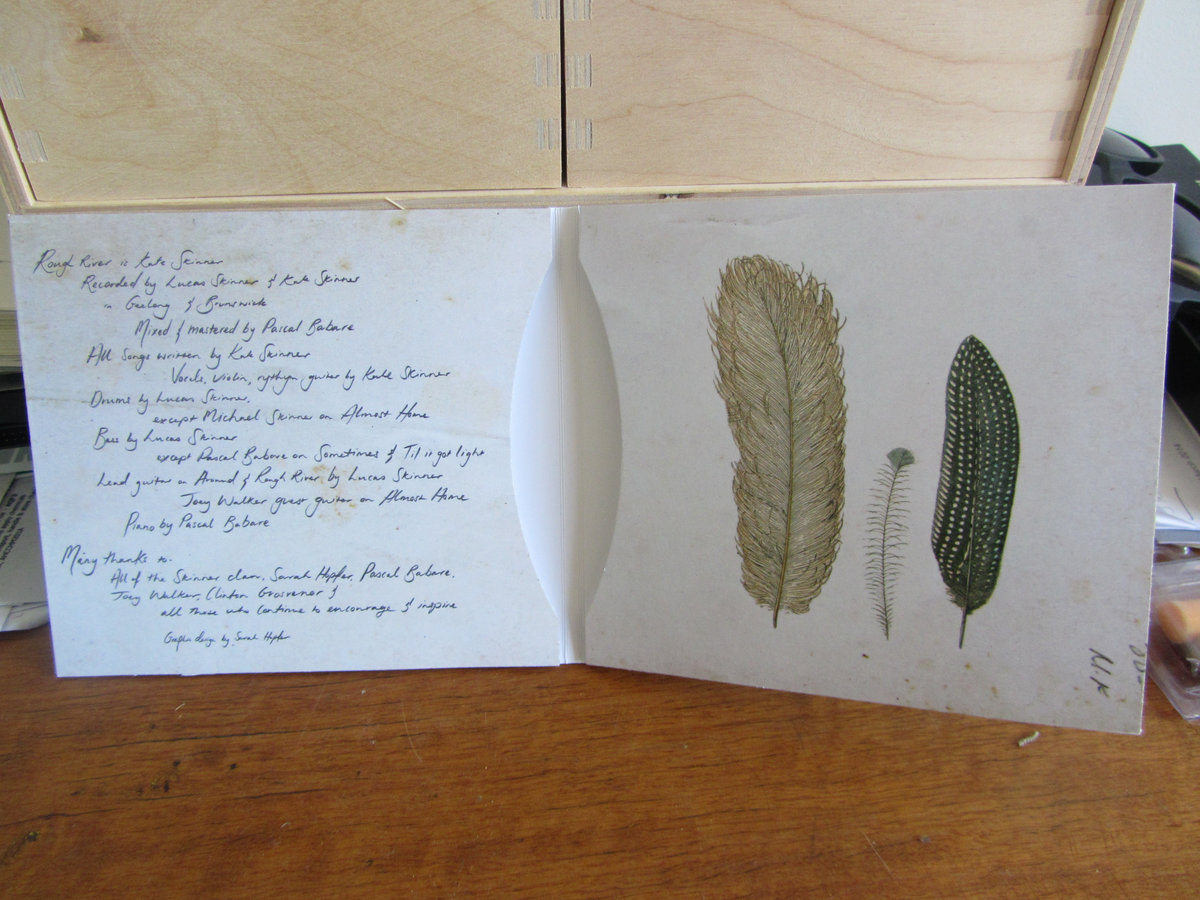 Rough River is Kate Skinner
Recorded by Lucas Skinner & Kate Skinner
in Geelong & Brunswick
Mixed & mastered by Pascal Babare
All Songs written by Kate Skinner
Vocals, violin, rythym guitar by Kate Skinner
Drums by Lucas Skinner,
except Michael Skinner on Almost Home
Bass by Lucas Skinner
except Pascal Babare on Sometimes & Til it got light
Lead guitar on Around & Rough River by Lucas Skinner
Joey Walker guest guitar on Almost Home
Piano by Pascal Babare
Many thanks to-
All of the Skinner clan, Sarah Hopfer, Pascal Babare,
Joey Walker, Clinton Grosvenor &
all those who continue to encourage & inspire
Graphic design by Sarah Hopfer